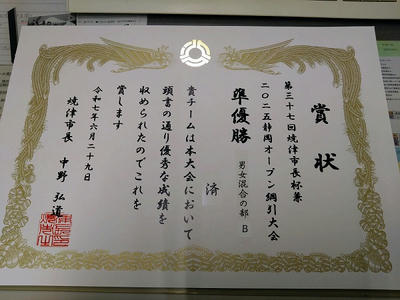 賞状
第三十七回焼津市長杯兼
二〇二五静岡オープン綱引大会
準優勝
男女混合の部 B
済
貴チームは本大会において
頭書の通り優秀な成績を
収められたのでこれを
賞します
令和七年六月二十九日
焼津市長 中野弘道